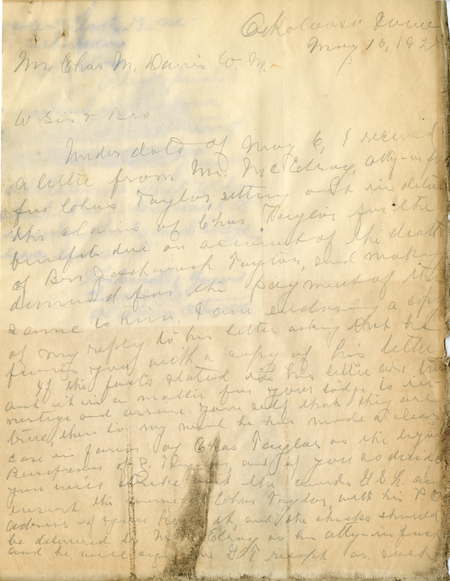 Oskaloosa Iowa
May 10, 192
Mr Chas M. Davis W. M.
W Sir & Bro
Under date of May 6, I received
a letter from Mr. McElroy, atty-in-fact
for Chas Taylor, setting out in detail
the claims of Chas Taylor for the
benefits due on account of the death
of Bro Taylor, and making
demand for the payment of the
same to him. I am enclosing a copy
of my reply to his letter asking that he
furnish you with a copy of his letter.
If the facts stated in his letter are true
and it is a matter for your lodge to
and assure yourself that they are
true, then to my mind he has made a clear
case in favor of Chas Taylor as the legal
Beneficiary of and if you so decide
you will strike out the words
insert the name of Chas Taylor, with his P.O.
address and the checks should
be delivered to Mr McElroy as his atty-in-fact
and he will sign the receipt as such